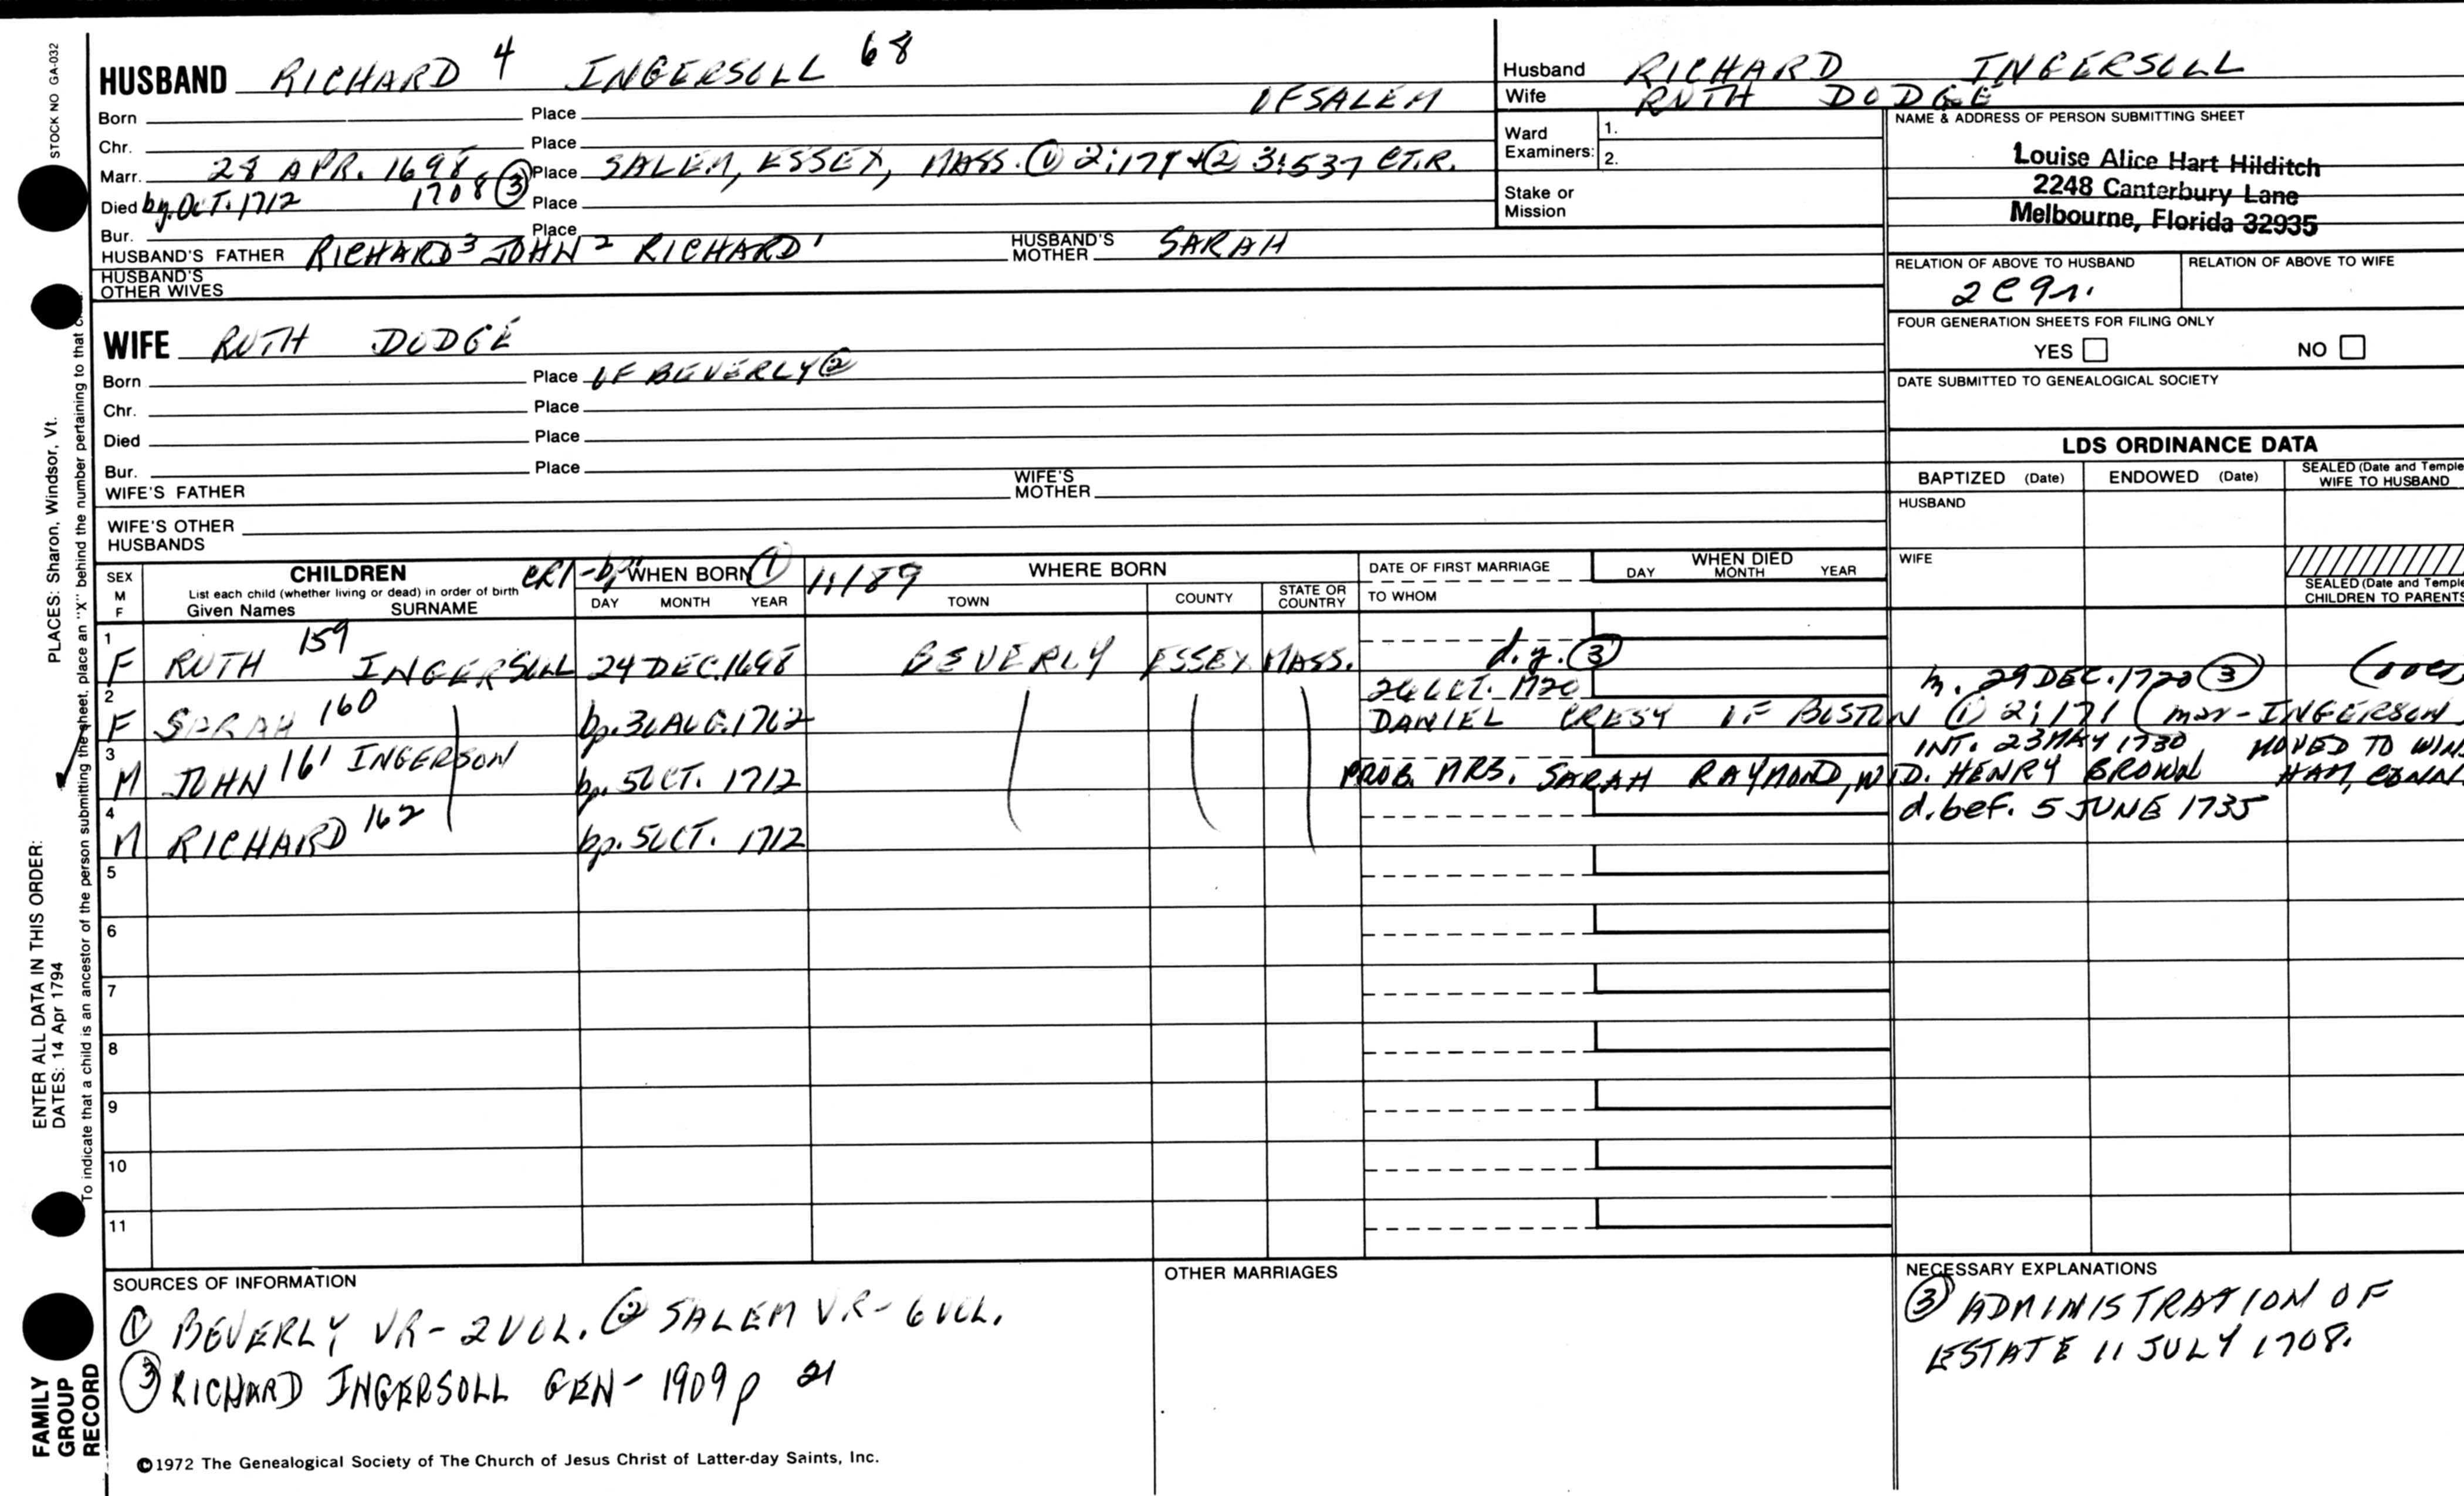 STOCK NO GA-032
HUSBAND RICHARD 4 INGERSOLL 68
OF SALEM
Born Place
Chr. Place
Marr. 28 APR. 1698 Place SALEM, ESSEX, MASS. ① 2:174 + ② 3:537 CT.R.
Died by OCT. 1712 1708 ③ Place
Bur. Place
HUSBAND'S FATHER RICHARD 3 JOHN 2 RICHARD 1 HUSBAND'S MOTHER SARAH
HUSBAND'S OTHER WIVES
WIFE RUTH DODGE
Born Place OF BEVERLY ②
Chr. Place
Died Place
Bur. Place
WIFE'S FATHER WIFE'S MOTHER
WIFE'S OTHER HUSBANDS
Husband RICHARD INGERSOLL
Wife RUTH DODGE
Ward Examiners: 1.
2.
Stake or Mission
NAME & ADDRESS OF PERSON SUBMITTING SHEET
Louise Alice Hart Hilditch
2248 Canterbury Lane
Melbourne, Florida 32935
RELATION OF ABOVE TO HUSBAND RELATION OF ABOVE TO WIFE
2C9r.
FOUR GENERATION SHEETS FOR FILING ONLY
YES NO
DATE SUBMITTED TO GENEALOGICAL SOCIETY
LDS ORDINANCE DATA
BAPTIZED (Date) ENDOWED (Date) SEALED (Date and Temple) WIFE TO HUSBAND
HUSBAND
WIFE
SEALED (Date and Temple) CHILDREN TO PARENTS
SEX M F
CHILDREN
List each child (whether living or dead) in order of birth
Given Names SURNAME
CR1-bp WHEN BORN ① 1:189
DAY MONTH YEAR
WHERE BORN
TOWN COUNTY STATE OR COUNTRY
DATE OF FIRST MARRIAGE
TO WHOM
WHEN DIED
DAY MONTH YEAR
1 F RUTH 159 INGERSOLL 24 DEC. 1698 BEVERLY ESSEX MASS. d.y. ③
26 OCT. 1720 m. 29 DEC. 1720 ③ (over
2 F SARAH 160 bp. 30 AUG. 1702 DANIEL CRESY OF BOSTON ① 2:171 (mar-INGERSON
INT. 23 MAY 1730 MOVED TO WIND
3 M JOHN 161 INGERSON bp. 5 OCT. 1712 PROB. MRS. SARAH RAYMOND, WID. HENRY BROWN HAM, CONN.
d. bef. 5 JUNE 1735
4 M RICHARD 162 bp. 5 OCT. 1712
5
6
7
8
9
10
11
SOURCES OF INFORMATION
① BEVERLY VR- 2 VOL. ② SALEM VR- 6 VOL.
③ RICHARD INGERSOLL GEN- 1909 p 21
OTHER MARRIAGES
NECESSARY EXPLANATIONS
③ ADMINISTRATION OF
ESTATE 11 JULY 1708.
©1972 The Genealogical Society of The Church of Jesus Christ of Latter-day Saints, Inc.
FAMILY GROUP RECORD
ENTER ALL DATA IN THIS ORDER:
DATES: 14 Apr 1794
PLACES: Sharon, Windsor, Vt.
To indicate that a child is an ancestor of the person submitting the sheet, place an "X" behind the number pertaining to that